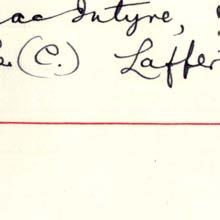 ac Intyre,
(C.) Laffer